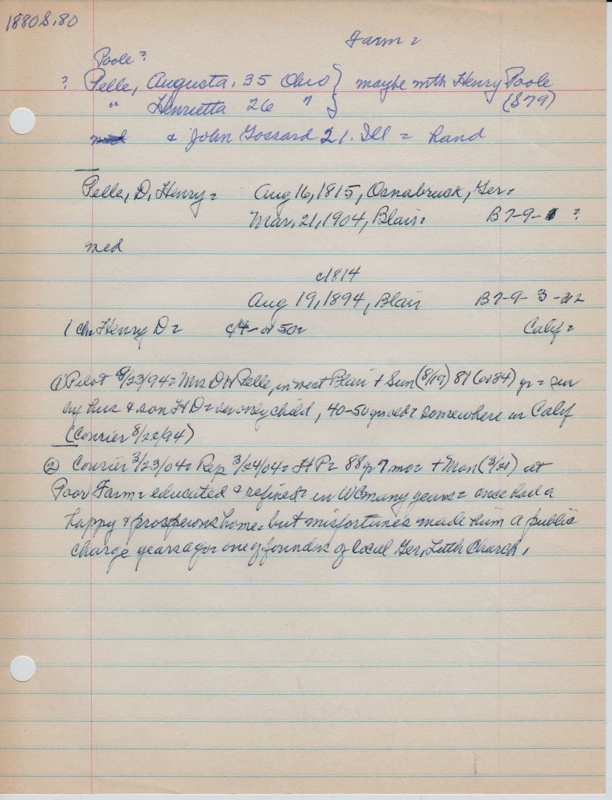 1880S.80
Farm=
Poole?
? Pelle, Augusta, 35 Ohio } maybe mth Henry Poole
" Henrietta 26 " } (S79)
& John Gossard 21. Ill = hand
Pelle, D. Henry= Aug 16, 1815, Osnabruck, Ger.
Mar. 21, 1904, Blair. B7-9- ?
med
c1814
Aug 19, 1894, Blair B7-9-3-
1 ch= Henry D= or 50= Calif=
① Pilot 8/23/94= Mrs D H Pelle, in west Blair + Sun (8/19) 81 (or 84) yr= sur
by hus & son H D= only child, 40-50 yr old= somewhere in Calif
(Courier 8/22/94)
② Courier 3/23/04= Rep 3/24/04= H P= 88 yr 7 mo= + Mon (3/21) at
Poor Farm= educated & refined= in WC many years= once had a
happy & prosperous home, but misfortunes made him a public
charge years ago= one of founders of local Ger, Luth Church,